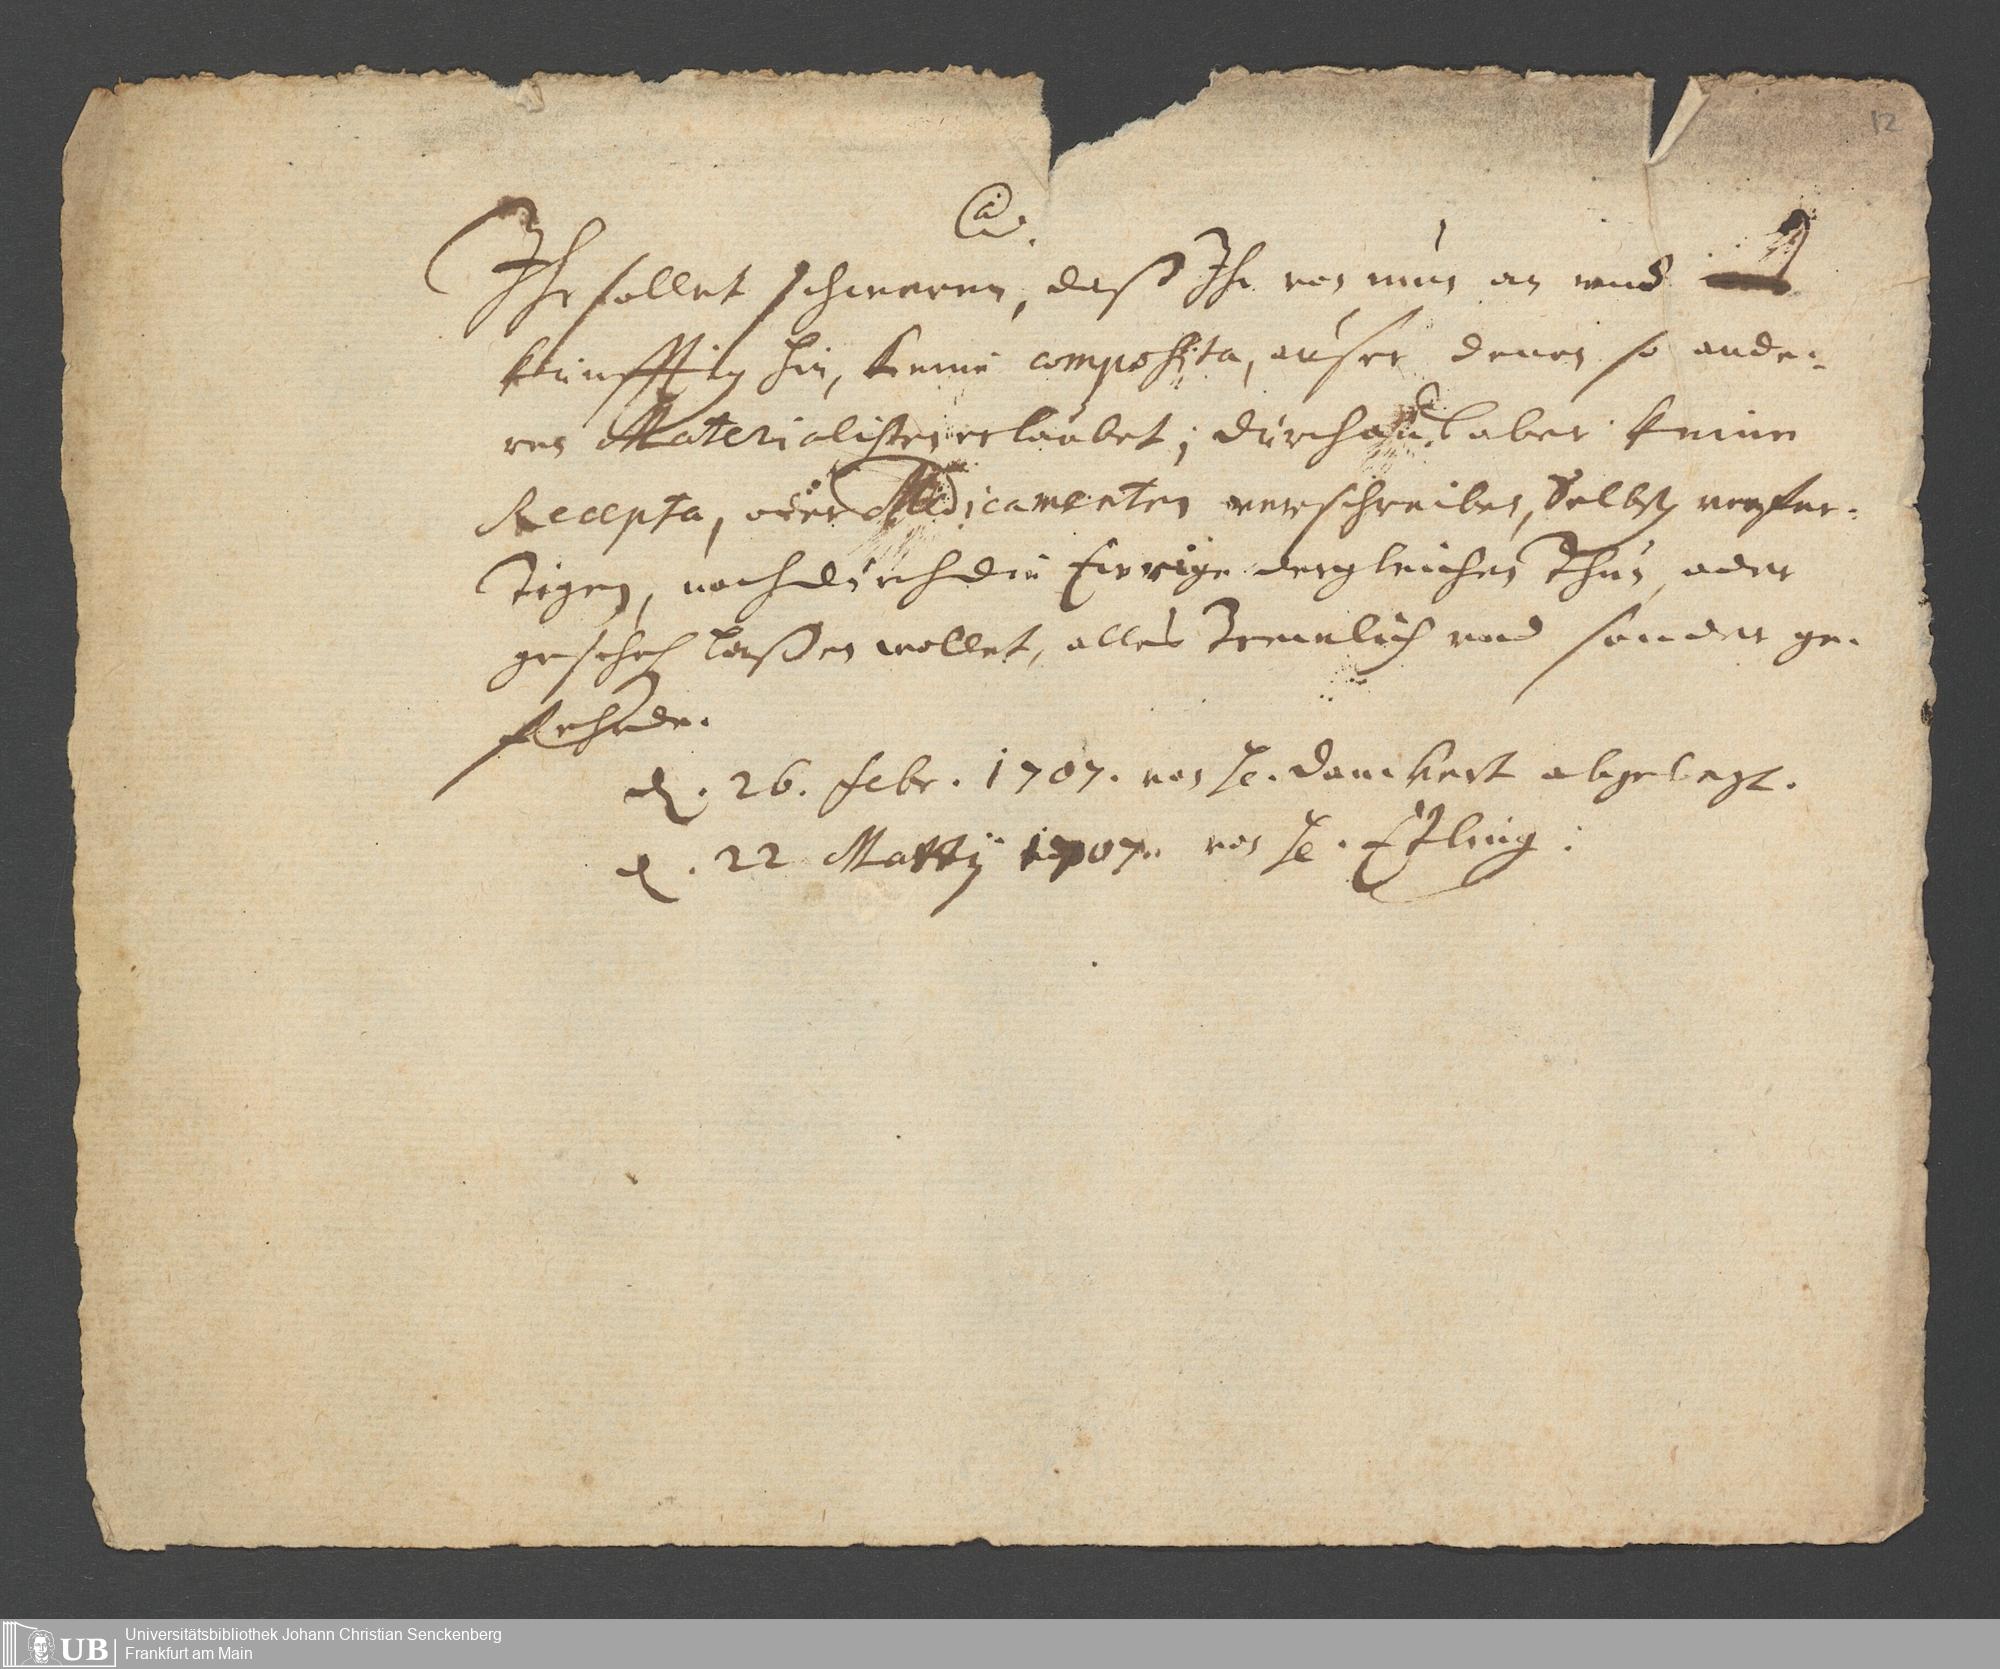 12
Ihr sollet schweren, daß Ihr von nun an und
künfftig hin, keine composita, auser denen so ande-
ren Materialisten erlaubet, durchaus aber keine
Recepta, oder Medicamenten verschreiben, Selbst verfer-
tigen, noch durch die Eurige dergleichen thun, oder
gescheh laßen wollet, alles treulich und sonder ge-
fehrde.
d. 26. febr. 1707. von H. Danckert abgelegt.
d. 22 Martij 1707. von H. Etling.
UB
Universitätsbibliothek Johann Christian Senckenberg
Frankfurt am Main